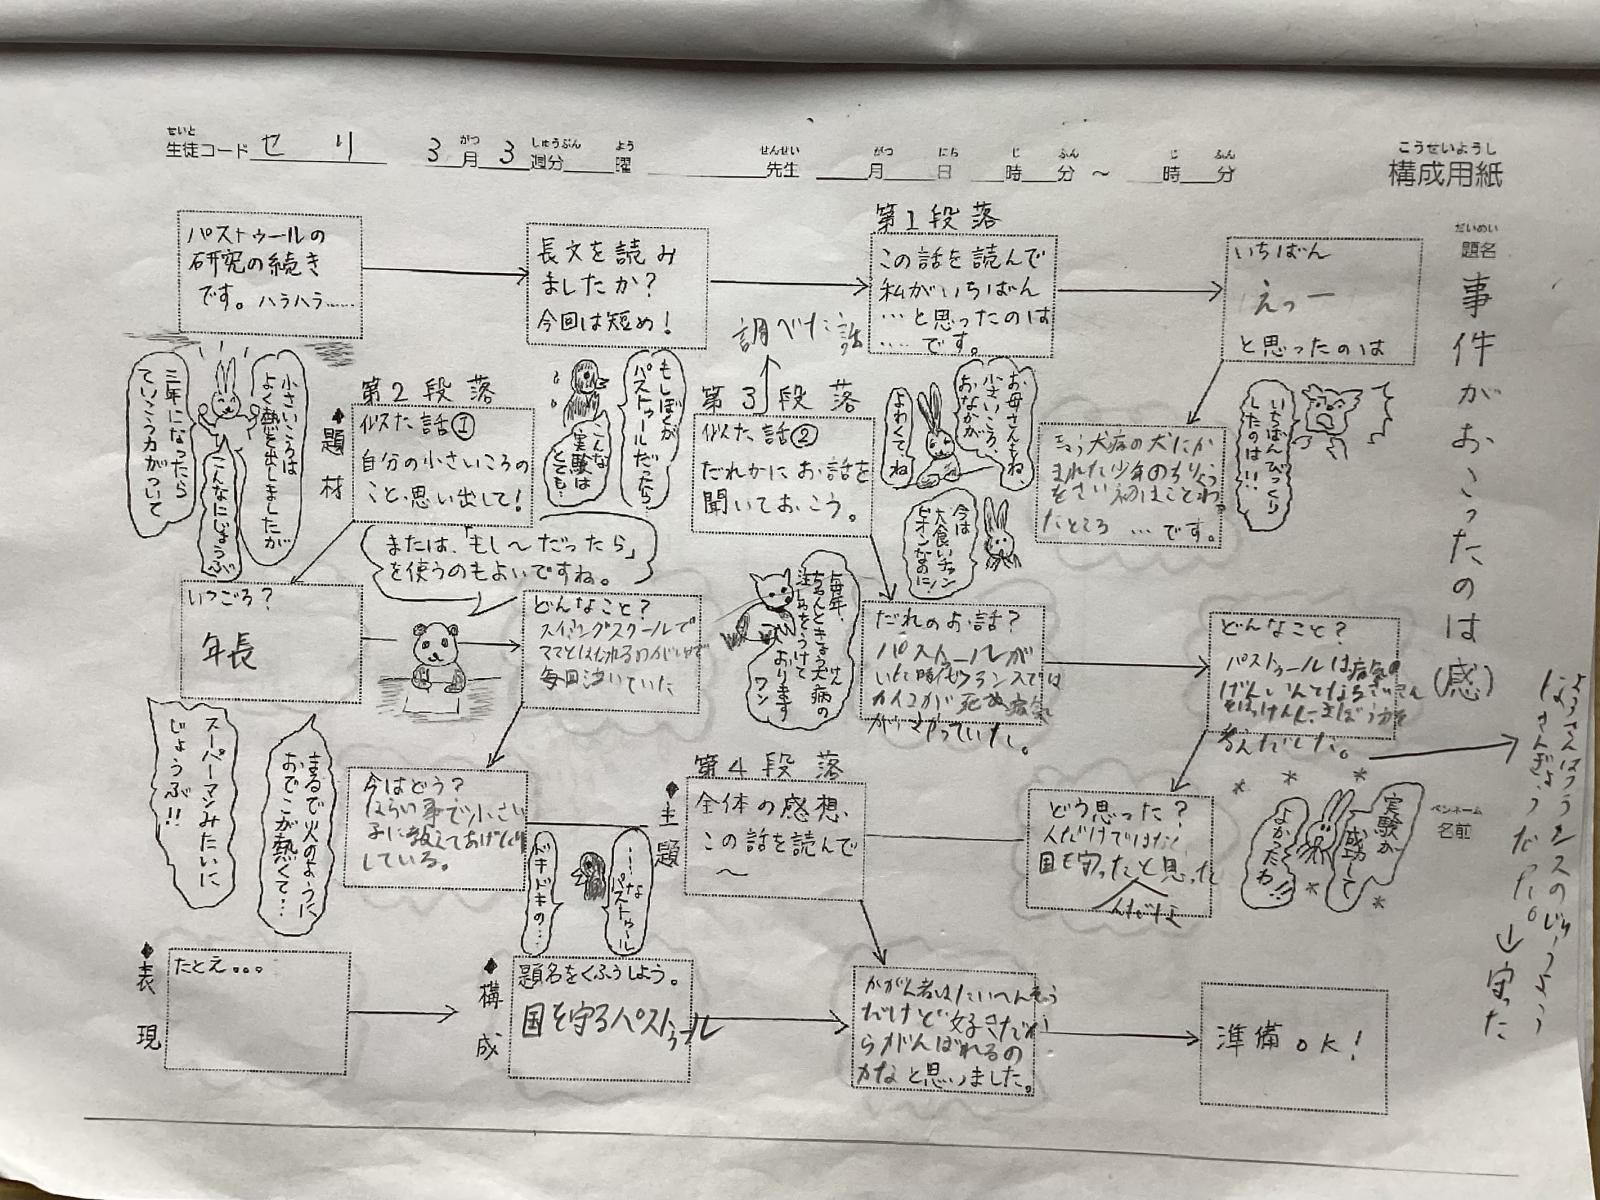 せいと
生徒コード せり 3月 3週分 曜 先生 月 日 時 分 ～ 時 分
がつ しゅうぶん よう せんせい がつ にち じ ふん じ ふん
こうせいようし
構成用紙
だいめい
題名
事件がおこったのは(感)
ペンネーム
名前
パストゥールの
研究の続き
です。ハラハラ……
長文を読み
ましたか?
今回は短め!
第1段落
この話を読んで
私がいちばん
…と思ったのは
…です。
いちばん
えっー
と思ったのは
きょう犬病の犬にか
まれた少年のちりょう
をさい初はことわっ
たところ…です。
いちばんびっくり
したのは!!
◆題材
第2段落
似た話①
自分の小さいころの
こと、思い出して!
または、「もし～だったら」
を使うのもよいですね。
小さいころは
よく熱を出しましたが
こんなにじょうぶ
三年になったら
ていこう力がついて
もしぼくが
パストゥールだったら
こんな
実験は
とても…
いつごろ?
年長
どんなこと?
スイミングスクールで
ママとはなれるのがいやで
毎回泣いていた
今はどう?
している。
まるで火のように
おでこが熱くて…
スーパーマンみたいに
じょうぶ!!
調べた話
第3段落
似た話②
だれかにお話を
聞いておこう。
お母さんもね、
小さいころ、
おなかが
よわくてね
今は
大食いチャン
ピオンなのに!
毎年、
ちゃんときょう犬病の
注しゃをうけて
おります
ワン
だれのお話?
パストゥールが
いた時代フランスでは
カイコが死ぬ病気
がはやっていた。
どんなこと?
パストゥールは病気の
げんいんとなるさいきん
をはっけんし、よぼう方を
考えだした。
ようさんはフランスのじゅうよう
なさんぎょうだった。→守った
◆主題
第4段落
全体の感想、
この話を読んで
～
どう思った?
人だけではなく
国も守ったと思った
実験が
成功して
よかったわ!!
……な
パストゥール
ドキドキの…
◆表現
たとえ。。。
◆構成
題名をくふうしよう。
国を守るパストゥール
かがく者はたいへんそう
だけど好きだか
らがんばれるの
かなと思いました。
準備OK!